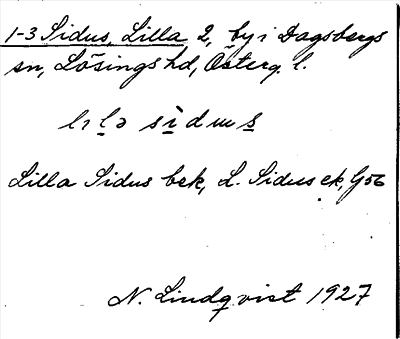 1-3 Sidus, Lilla 2, by i Dagsbergs
sn, Lösings hd, Österg. l.
Lilla Sidus bek, L. Sidus ek, G56
N. Lindqvist 1927